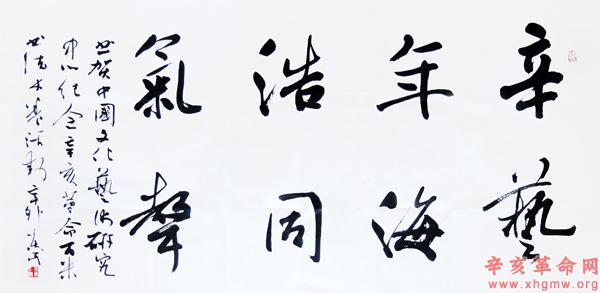 辛年浩氣
藝海同聲
书賀中國文化藝術研究
中心纪念辛亥革命百米
书法卷活動辛卯
辛亥革命网
www.xhgmw.org